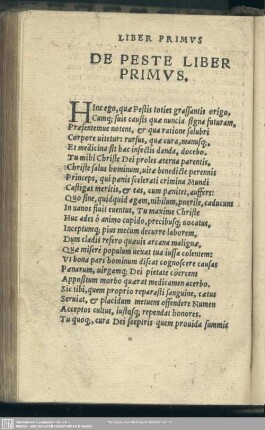 LIBER PRIMVS
DE PESTE LIBER
PRIMVS.
HInc ego, quæ Pestis toties grassantis origo,
Cumq; suis causis quæ nuncia signa futuram,
Præsentemue notent, & qua ratione salubri
Corpore uitetur: rursus, quæ cura, manusq;
Et medicina sit hac infectis danda, docebo.
Tu mihi Christe Dei proles æterna parentis,
Christe salus hominum, uitæ benedicte perennis
Princeps, qui panis scelerati crimina Mundi
Castigas meritis, & eas, cum pænitet, auffers:
Quo sine, quidquid agam, nihilum, puerile, caducum
In uanos fluit euentus, Tu maxime Christe
Huc ades ô animo cupido, precibusq; uocatus,
Inceptumq; pius mecum decurre laborem,
Dum cladis refero quauis arcana maligna,
Quæ miserè populum uexat tua iussa colentem:
Vi bona pars hominum discat cognoscere causas
Pænarum, uirgamq; Dei pietate coërcens
Appositum morbo quærat medicamen acerbo.
Sic tibi, quem proprio reparasti sanguine, cætus
Seruiat, & placidum metuens offendere Numen
Acceptos cultus, iustosq; rependat honores.
Tu quoq;, cura Dei sæptris quem prouida summis